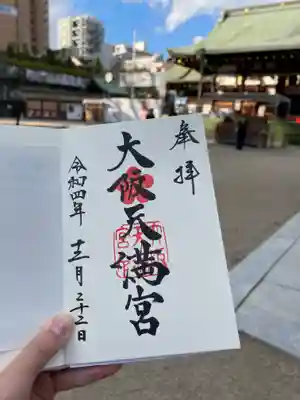 奉拝
大阪天満宮
令和四年 十二月 二十二日